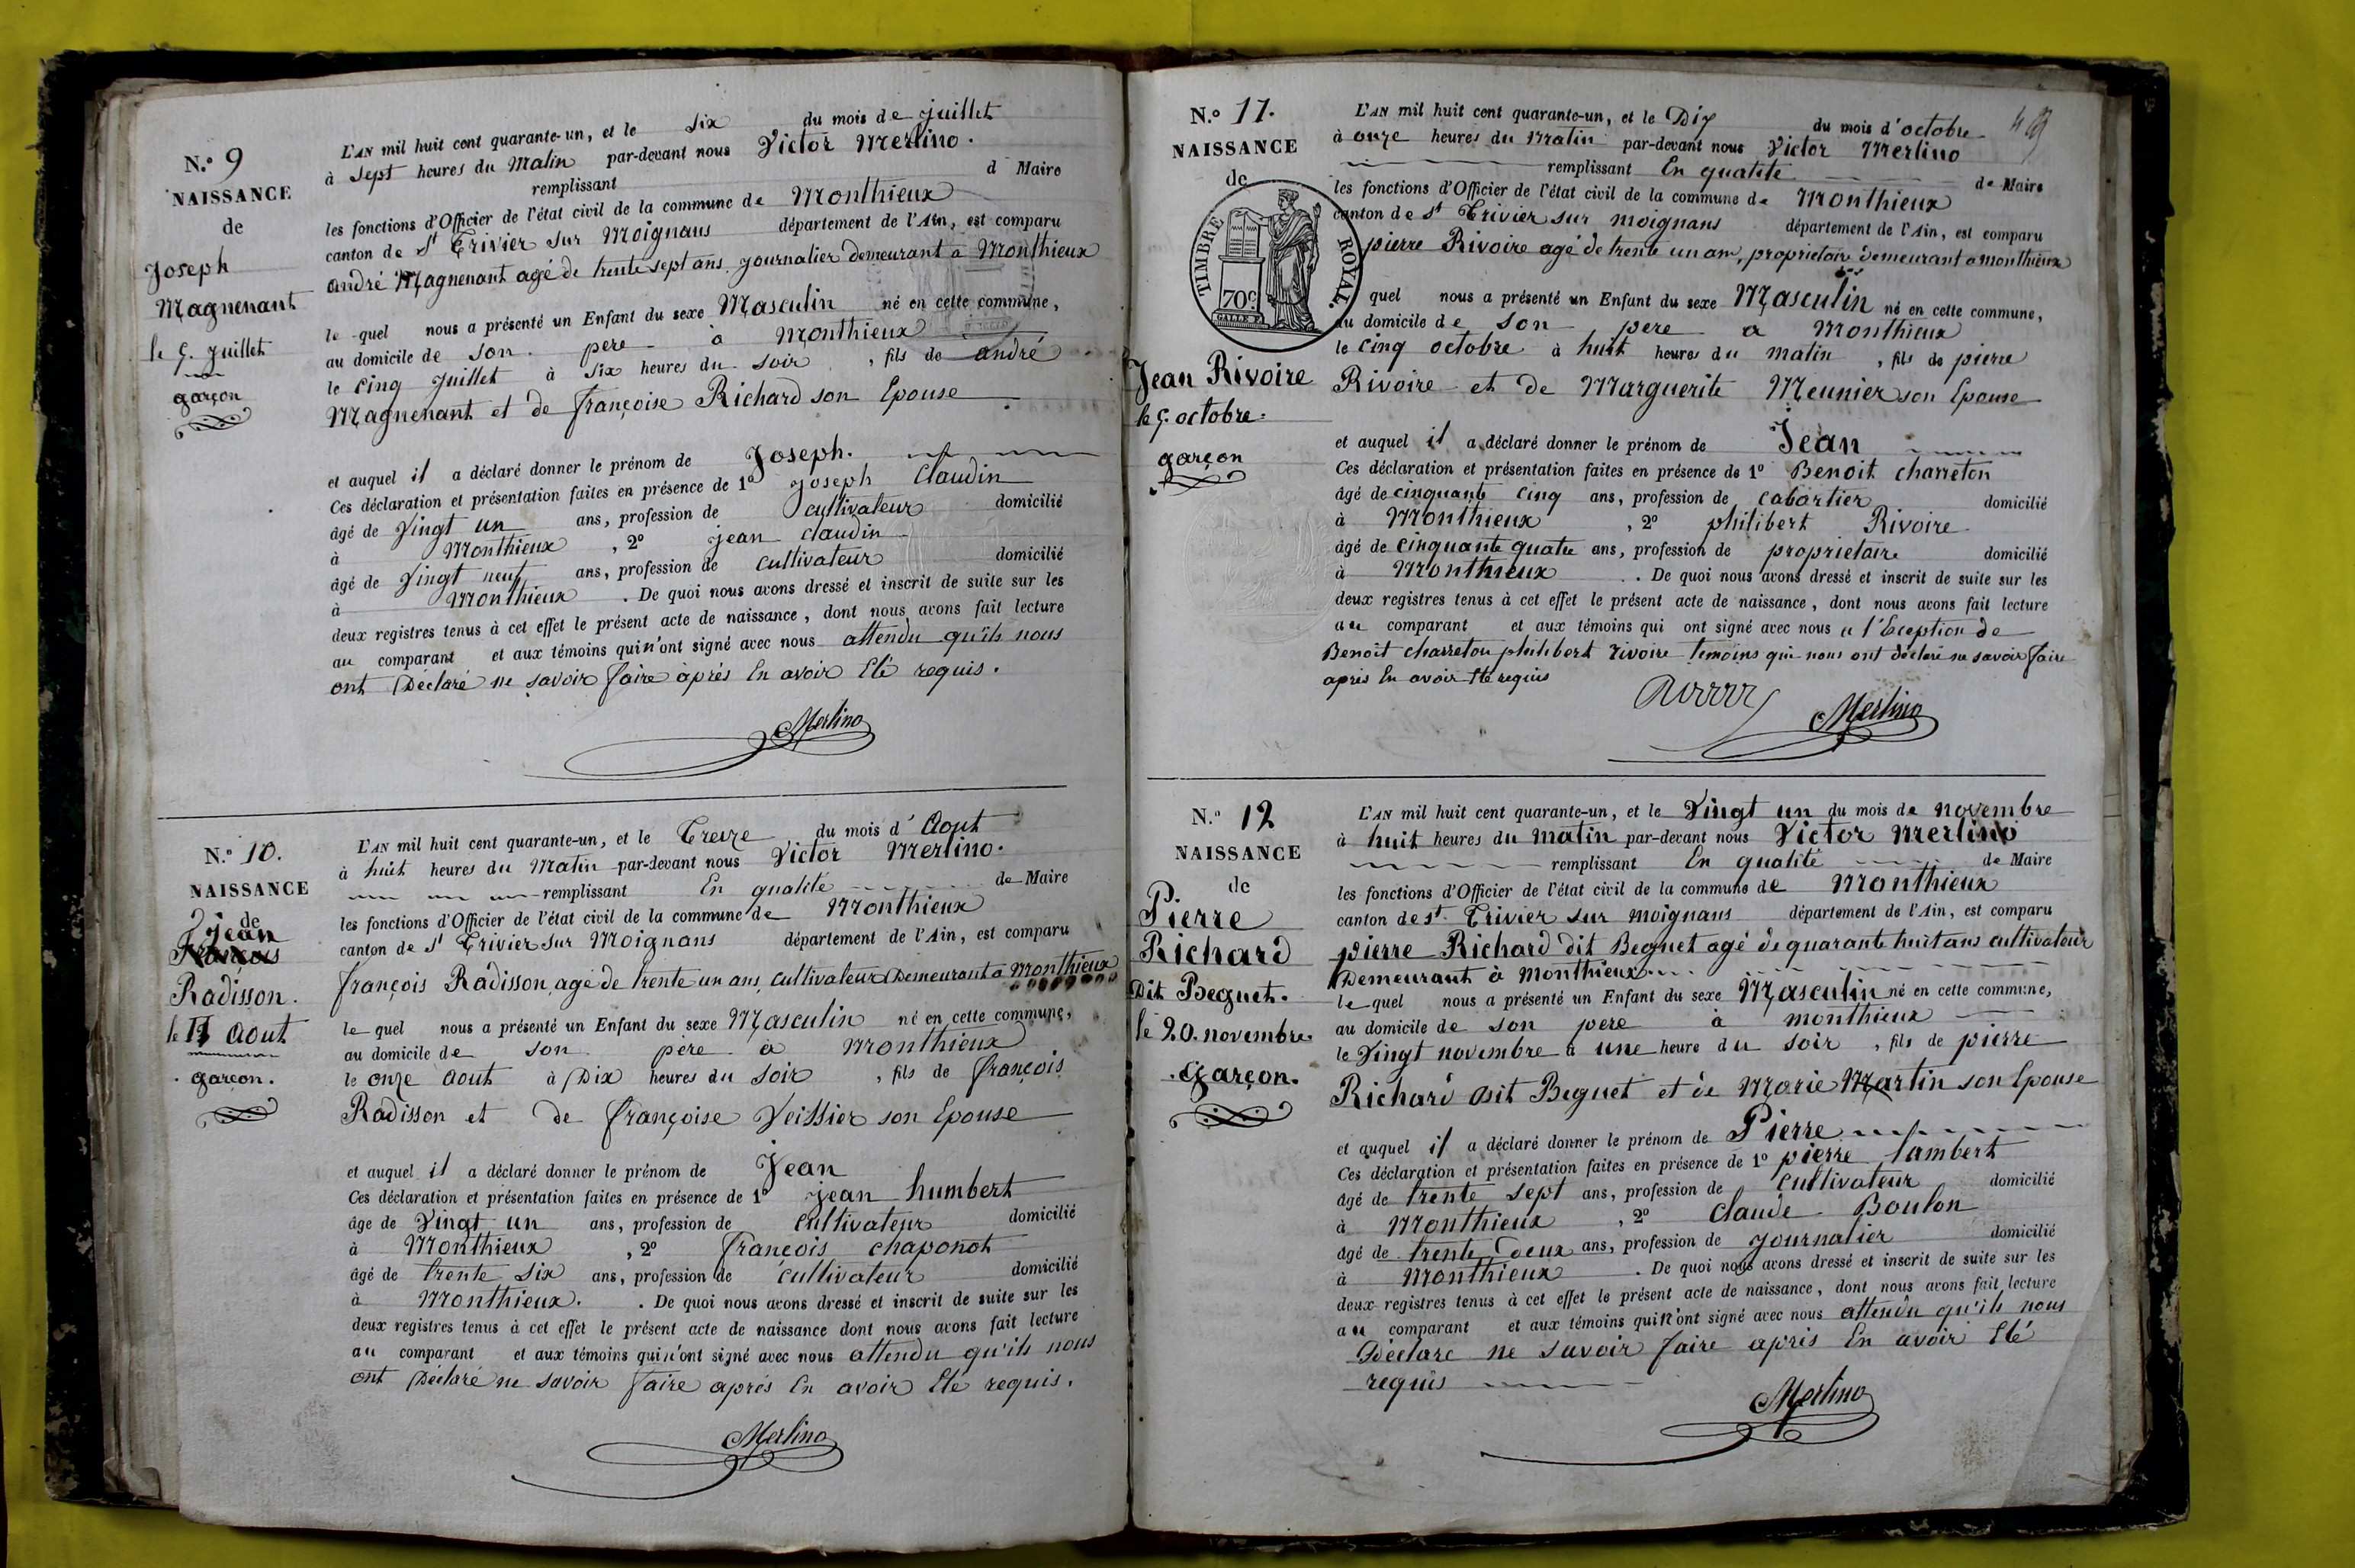 N.º 9
NAISSANCE
de
Joseph
Magnenant
le 5. Juillet
garçon
L'AN mil huit cent quarante-un, et le six du mois de juillet
à sept heures du Matin par-devant nous Victor Merlino.
remplissant d Maire
les fonctions d'Officier de l'état civil de la commune de Monthieux
canton de St Trivier sur Moignans département de l'Ain, est comparu
andré Magnenant agé de trente sept ans journalier demeurant a Monthieux
le quel nous a présenté un Enfant du sexe Masculin né en cette commune,
au domicile de son pere à Monthieux
le cinq Juillet à six heures du soir, fils de andré
Magnenant et de françoise Richard son Epouse
et auquel il a déclaré donner le prénom de Joseph.
Ces déclaration et présentation faites en présence de 1º Joseph Claudin
âgé de Vingt un ans, profession de cultivateur domicilié
à Monthieux, 2º jean claudin
âgé de Vingt neuf ans, profession de cultivateur domicilié
à Monthieux. De quoi nous avons dressé et inscrit de suite sur les
deux registres tenus à cet effet le présent acte de naissance, dont nous avons fait lecture
au comparant et aux témoins qui n'ont signé avec nous attendu qu'ils nous
ont Déclaré ne savoir faire après En avoir Eté requis.
Merlino
N.º 10.
NAISSANCE
de
Jean
Radisson.
le 11 Aout
garçon.
L'AN mil huit cent quarante-un, et le Treize du mois d'Aout
à huit heures du Matin par-devant nous Victor Merlino.
remplissant En qualité de Maire
les fonctions d'Officier de l'état civil de la commune de Monthieux
canton de St Trivier sur Moignans département de l'Ain, est comparu
françois Radisson, agé de trente un ans, cultivateur Demeurant a Monthieux
le quel nous a présenté un Enfant du sexe Masculin né en cette commune,
au domicile de son père à Monthieux
le onze Aout à Dix heures du soir, fils de françois
Radisson et de françoise Veissier son Epouse
et auquel il a déclaré donner le prénom de Jean
Ces déclaration et présentation faites en présence de 1º jean humbert
âge de Vingt un ans, profession de cultivateur domicilié
à Monthieux, 2º françois chaponot
âgé de trente six ans, profession de cultivateur domicilié
à Monthieux. . De quoi nous avons dressé et inscrit de suite sur les
deux registres tenus à cet effet le présent acte de naissance dont nous avons fait lecture
au comparant et aux témoins qui n'ont signé avec nous attendu qu'ils nous
ont Déclaré ne savoir faire aprés En avoir Eté requis.
Merlino
N.º 11.
NAISSANCE
de
TIMBRE ROYAL.
70c
Jean Rivoire
le 5. octobre.
garçon
L'AN mil huit cent quarante-un, et le Dix du mois d'octobre
à onze heures du Matin par-devant nous Victor Merlino
remplissant En qualité de Maire
les fonctions d'Officier de l'état civil de la commune de Monthieux
canton de st Trivier sur moignans département de l'Ain, est comparu
pierre Rivoire agé de trente un ans, proprietaire demeurant a monthieux
quel nous a présenté un Enfant du sexe Masculin né en cette commune,
au domicile de son pere a Monthieux
le cinq octobre à huit heures du matin, fils de pierre
Rivoire et de Marguerite Meunier son Epouse
et auquel il a déclaré donner le prénom de Jean
Ces déclaration et présentation faites en présence de 1º Benoit charreton
âgé de cinquante cinq ans, profession de cabartier domicilié
à Monthieux, 2º philibert Rivoire
âgé de cinquante quatre ans, profession de proprietaire domicilié
à Monthieux. De quoi nous avons dressé et inscrit de suite sur les
deux registres tenus à cet effet le présent acte de naissance, dont nous avons fait lecture
au comparant et aux témoins qui ont signé avec nous a l'Eception de
Benoit charreton philibert rivoire temoins qui nous ont déclaré ne savoir faire
aprés En avoir Eté requis
Merlino
N.º 12
NAISSANCE
de
Pierre
Richard
Dit Beguet.
le 20. novembre
Garçon.
L'AN mil huit cent quarante-un, et le Vingt un du mois de novembre
à huit heures du matin par-devant nous Victor Merlino
remplissant En qualité de Maire
les fonctions d'Officier de l'état civil de la commune de Monthieux
canton de st. Trivier sur moignans département de l'Ain, est comparu
pierre Richard dit Beguet agé de quarante huit ans cultivateur
Demeurant à Monthieux
le quel nous a présenté un Enfant du sexe Masculin né en cette commune,
au domicile de son pere à monthieux
le Vingt novembre à une heure du soir, fils de pierre
Richard dit Beguet et de Marie Martin son Epouse
et auquel il a déclaré donner le prénom de Pierre
Ces déclaration et présentation faites en présence de 1º pierre lambert
âgé de trente sept ans, profession de cultivateur domicilié
à Monthieux, 2º Claude Boulon
âgé de trente Deux ans, profession de journalier domicilié
à Monthieux. De quoi nous avons dressé et inscrit de suite sur les
deux registres tenus à cet effet le présent acte de naissance, dont nous avons fait lecture
au comparant et aux témoins qui n'ont signé avec nous attendu qu'ils nous
Déclaré ne savoir faire après En avoir Eté
requis
Merlino